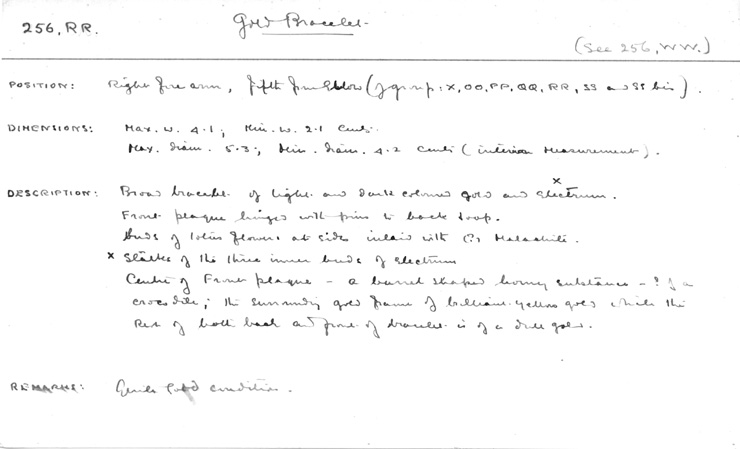 256, RR.
Gold Bracelet.
(See 256, WW.)
POSITION: Right fore arm, fifth from Elbow (group: X, OO, PP, QQ, RR, SS and SS bis).
DIMENSIONS: Max. w. 4.1; Min. w. 2.1 Cents.
Max. diam. 5.3; Min. diam. 4.2 Cents (interior measurement).
x
DESCRIPTION: Broad bracelet of light and dark coloured gold and Electrum.
Front plaque hinged with pins to back hoop.
Buds of lotus flowers at sides inlaid with (?) Malachite.
x Stalks of the three inner buds of Electrum
Centre of Front plaque - a barrel shaped horny substance - ? of a
crocodile; the surrounding gold frame of brilliant yellow gold while the
Rest of both back and front of bracelet is of a dull gold.
REMARKS: Quite good condition.